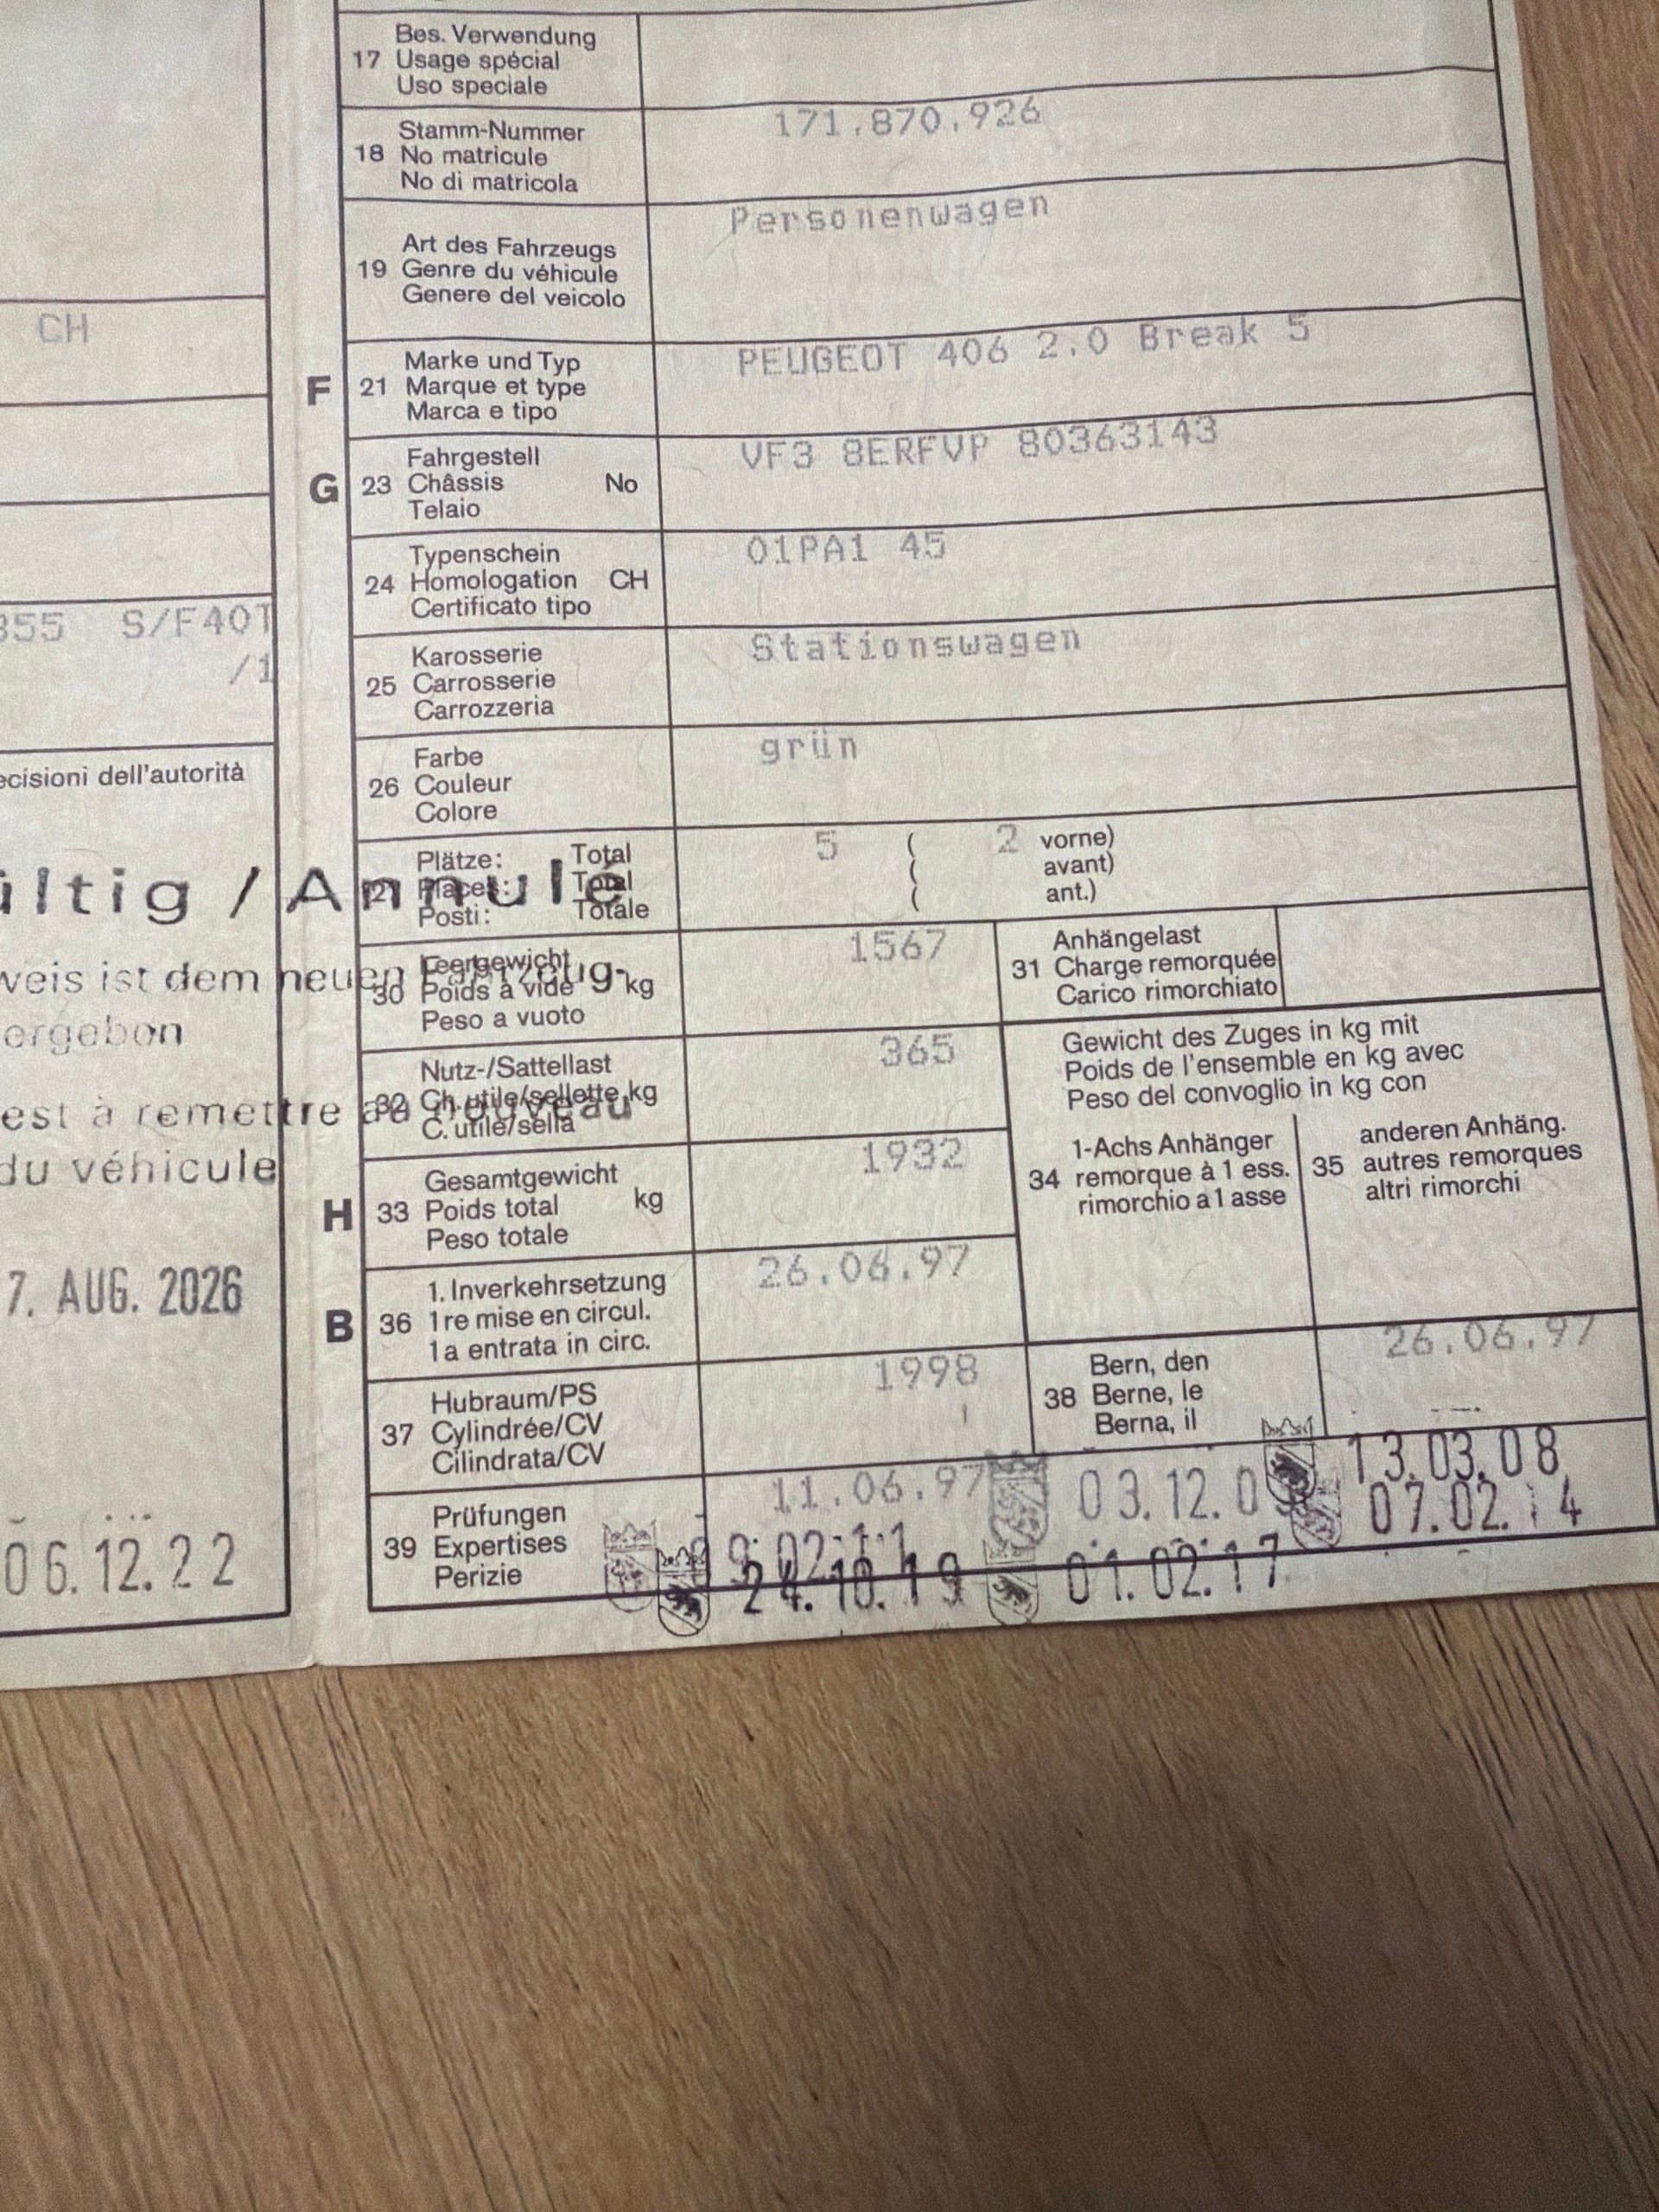 Bes. Verwendung
17 Usage spécial
Uso speciale
18 Stamm-Nummer
No matricule
No di matricola
171.870.926
19 Art des Fahrzeugs
Genre du véhicule
Genere del veicolo
Personenwagen
F 21 Marke und Typ
Marque et type
Marca e tipo
PEUGEOT 406 2.0 Break 5
G 23 Fahrgestell
Châssis No
Telaio
VF3 8ERFVP 80363143
24 Typenschein
Homologation CH
Certificato tipo
01PA1 45
25 Karosserie
Carrosserie
Carrozzeria
Stationswagen
26 Farbe
Couleur
Colore
grün
Plätze: Total
Places: Total
Posti: Totale
5 ( 2 vorne)
( avant)
( ant.)
30 Leergewicht
Poids à vide kg
Peso a vuoto
1567
31 Anhängelast
Charge remorquée
Carico rimorchiato
32 Nutz-/Sattellast
Ch. utile/sellette kg
C. utile/sella
365
Gewicht des Zuges in kg mit
Poids de l'ensemble en kg avec
Peso del convoglio in kg con
34 1-Achs Anhänger
remorque à 1 ess.
rimorchio a 1 asse
35 anderen Anhäng.
autres remorques
altri rimorchi
H 33 Gesamtgewicht
Poids total kg
Peso totale
1932
B 36 1. Inverkehrsetzung
1re mise en circul.
1a entrata in circ.
26.06.97
37 Hubraum/PS
Cylindrée/CV
Cilindrata/CV
1998
38 Bern, den
Berne, le
Berna, il
26.06.97
39 Prüfungen
Expertises
Perizie
11.06.97
03.12.0
13.03.08
07.02.14
24.10.19
01.02.17
CH
355 S/F40T
/1
ecisioni dell'autorità
ültig / Annulé
weis ist dem neuen Fahrzeug-
ergeben
est à remettre au nouveau
du véhicule
7. AUG. 2026
06.12.22